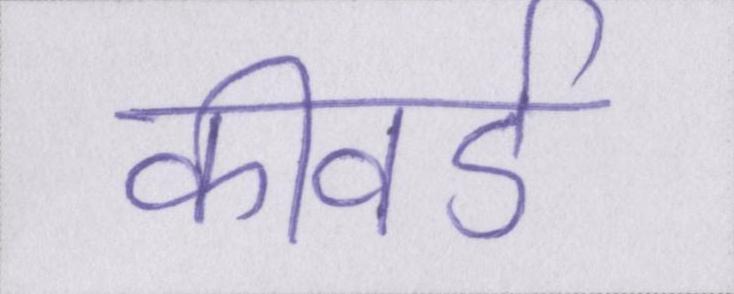 कीवर्ड